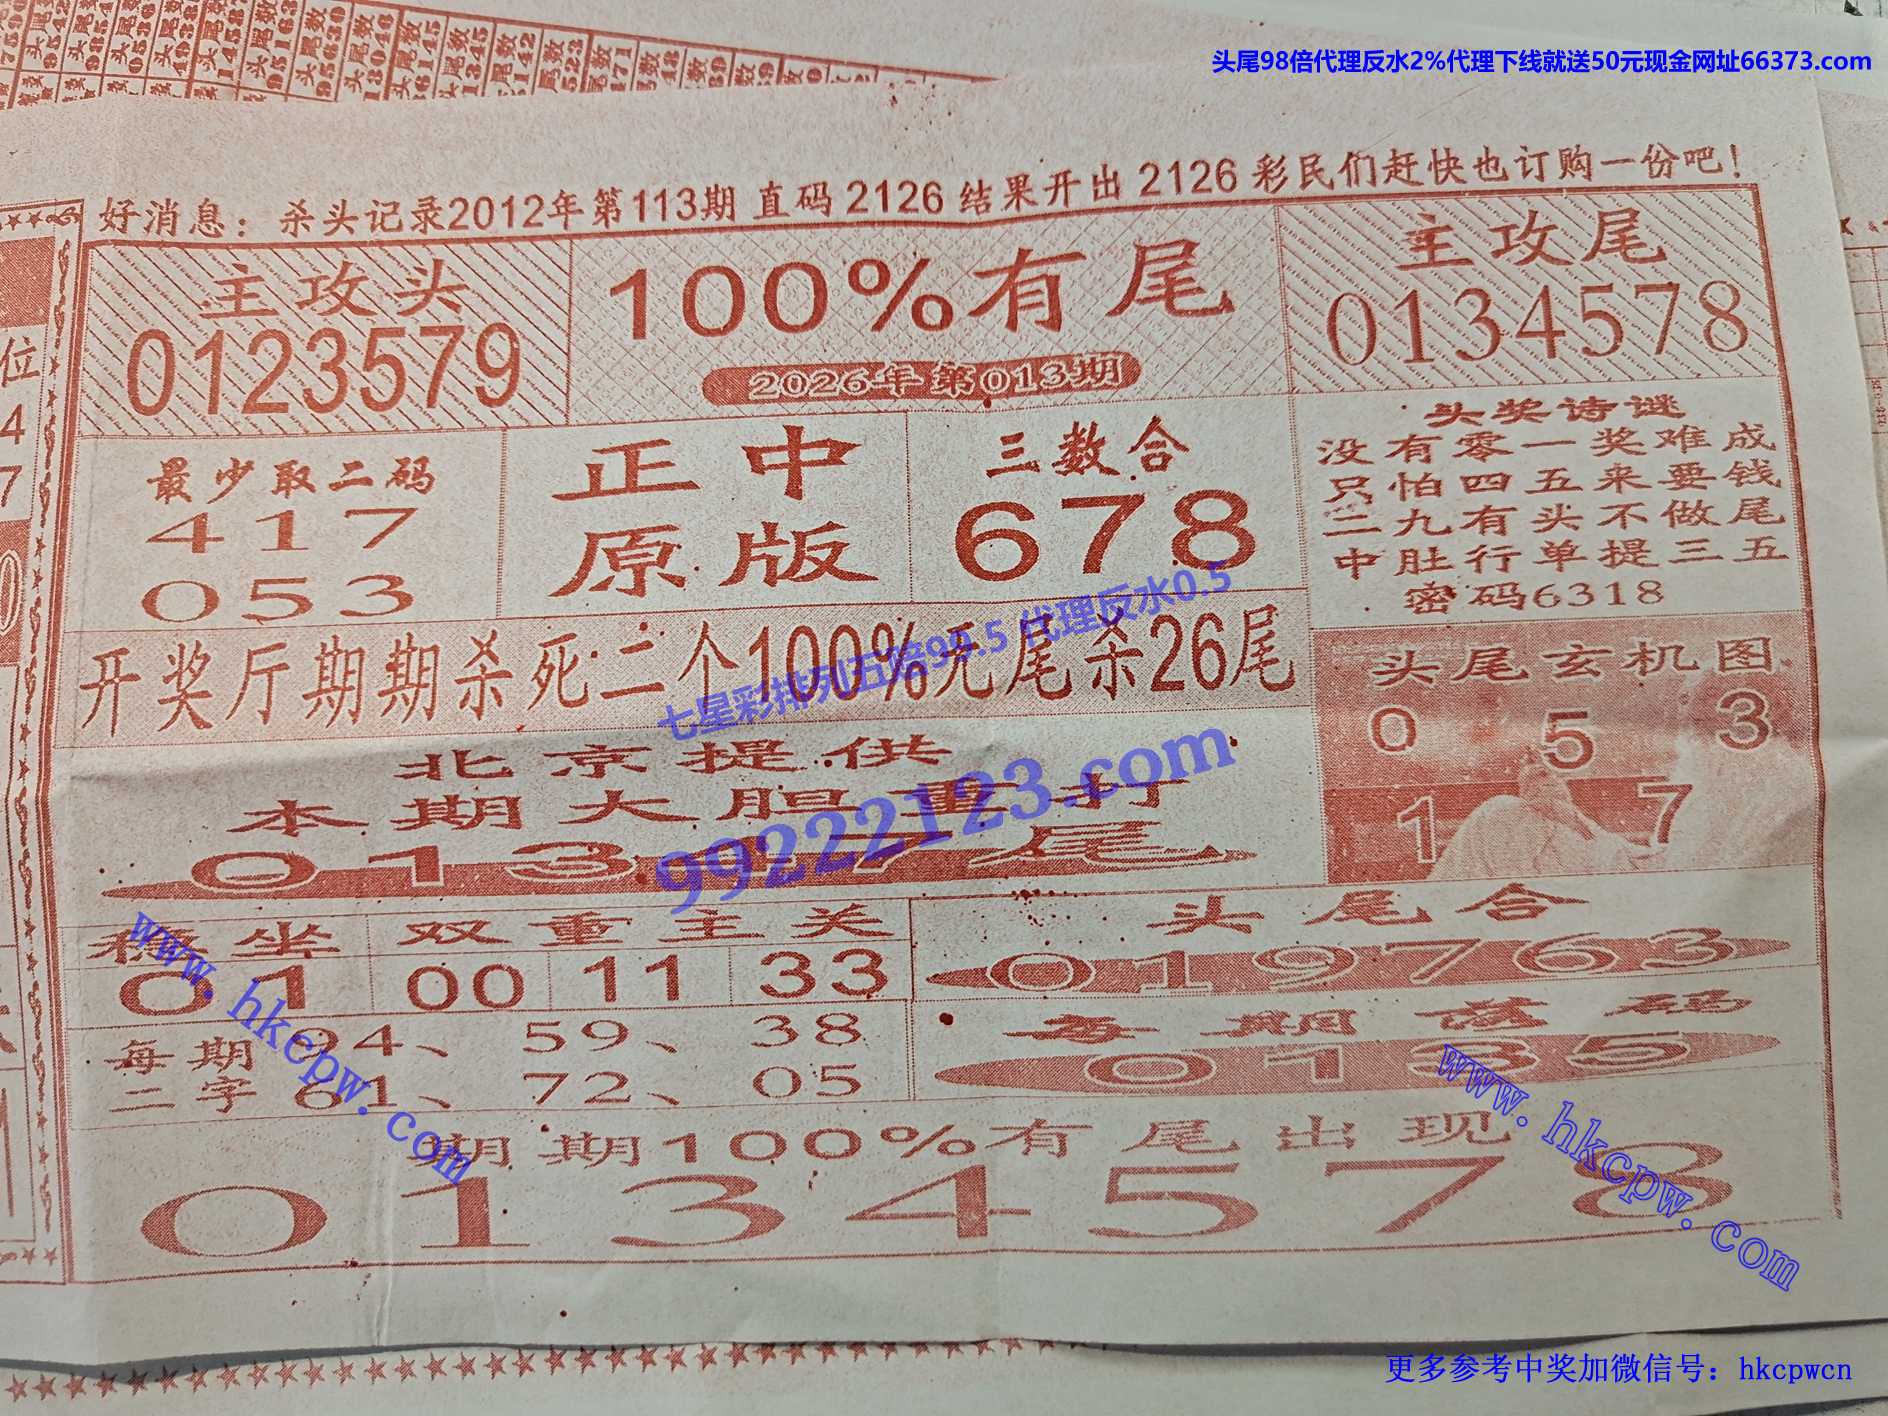 头尾98倍代理反水2%代理下线就送50元现金网址66373.com
好消息：杀头记录2012年第113期 直码 2126 结果开出 2126 彩民们赶快也订购一份吧！
主攻头
0123579
100%有尾
2026年第013期
主攻尾
0134578
最少取二码
417
053
正中
原版
三数合
678
头奖诗谜
没有零一奖难成
只怕四五来要钱
二九有头不做尾
中肚行单提三五
密码6318
开奖厅期期杀死二个100%无尾杀26尾
七星彩排列五赔99.5 代理反水0.5
头尾玄机图
0 5 3
1 7
北京提供
本期大胆重打
99222123.com
稳坐
01
双重主关
00 11 33
头尾合
019763
每期
二字
94、59、38
61、72、05
每期落码
0135
www.hkcpw.com
www.hkcpw.com
期期100%有尾出现
0134578
更多参考中奖加微信号：hkcpwcn